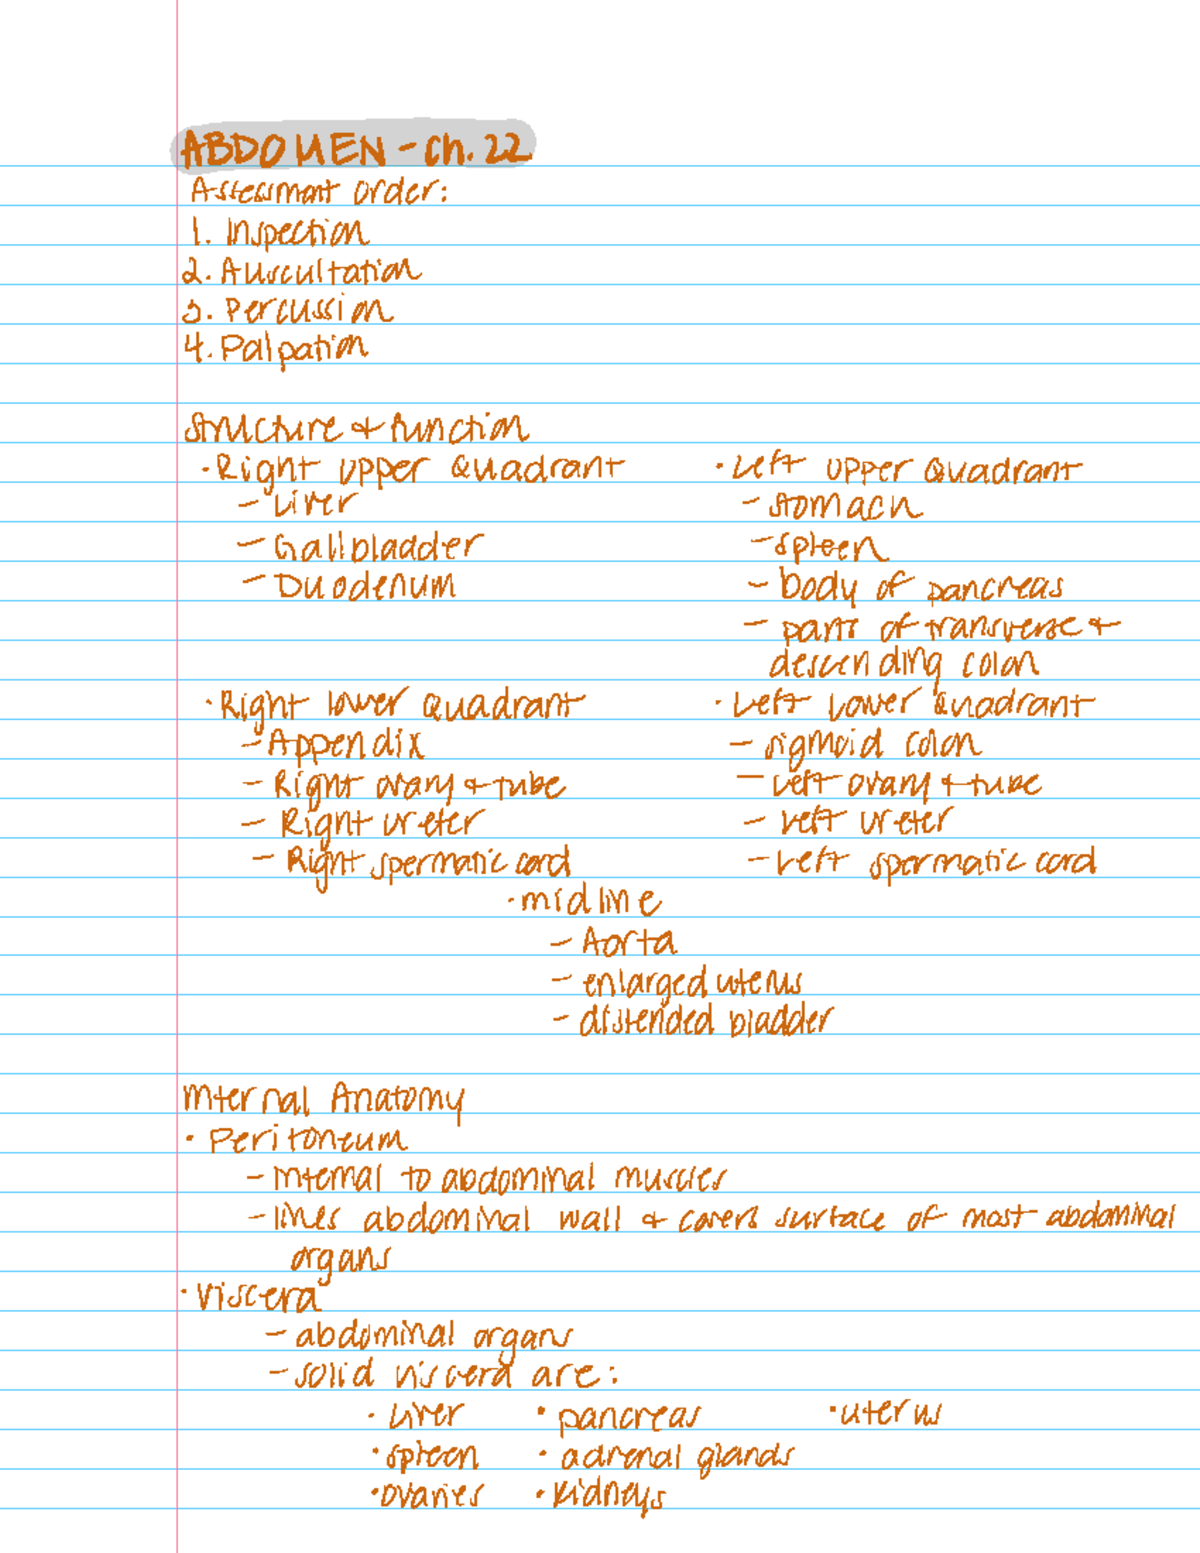 ABDOMEN - Ch. 22
Assessment order:
1. Inspection
2. Auscultation
3. Percussion
4. Palpation
Structure & function
· Right upper Quadrant
- Liver
- Gallbladder
- Duodenum
· Left upper Quadrant
- stomach
- spleen
- body of pancreas
- parts of transverse &
descending colon
· Right lower Quadrant
- Appendix
- Right ovary & tube
- Right ureter
- Right spermatic cord
· Left Lower Quadrant
- sigmoid colon
- Left ovary & tube
- Left ureter
- Left spermatic cord
· midline
- Aorta
- enlarged uterus
- distended bladder
Internal Anatomy
· Peritoneum
- Internal to abdominal muscles
- lines abdominal wall & covers surface of most abdominal
organs
· Viscera
- abdominal organs
- solid viscera are:
· Liver · pancreas · uterus
· spleen · adrenal glands
· ovaries · kidneys